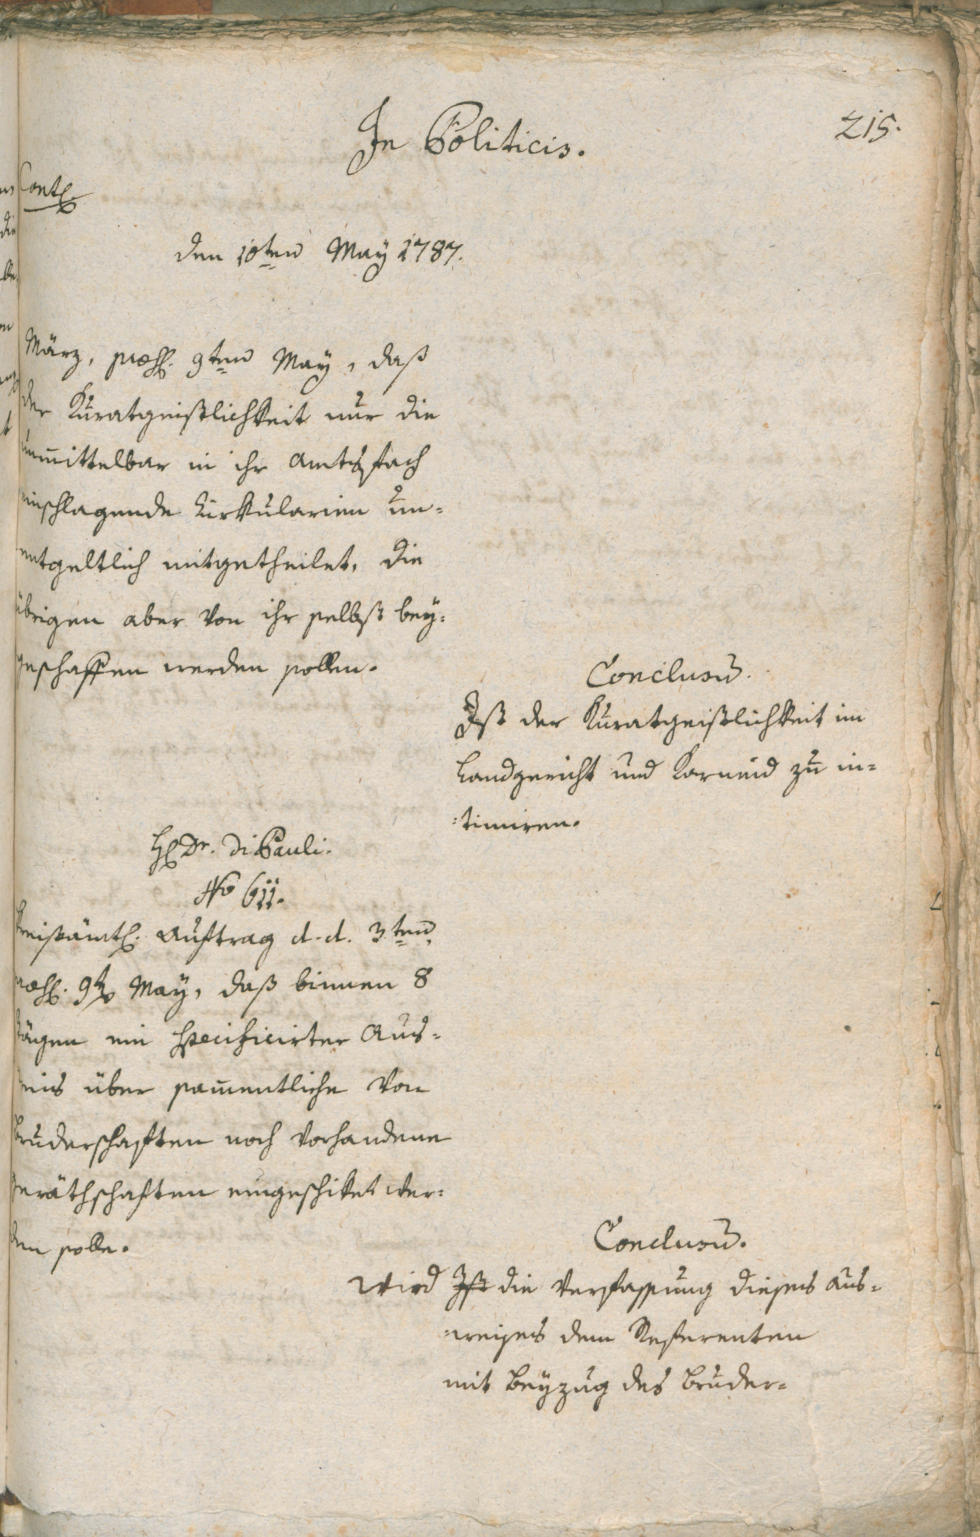 In Politicis.
215.
Contl.
den 10ten May 1787.
März, præs. 9ten May, daß
der Kuratgeistlichkeit nur die
unmittelbar in ihr Amtsfach
einschlagende Cirkularien un=
entgeltlich mitgetheilet, die
übrigen aber von ihr selbst bey=
geschaffen werden sollen.
Conclusum.
Ist der Kuratgeistlichkeit im
Landgericht und Karneid zu in=
=timiren.
H. Dr. Di Pauli.
No 611.
Kreisämtl. Auftrag d. d. 3ten,
præs. 9ten May, daß binnen 8
Tägen ein specificirter Aus=
weis über sammentliche von
Bruderschaften noch vorhandene
Geräthschaften eingeschiket wer=
den solle.
Conclusum.
Wird Ist die Verfassung dieses Aus=
=weises dem Referenten
mit Beyzug des Bruder=